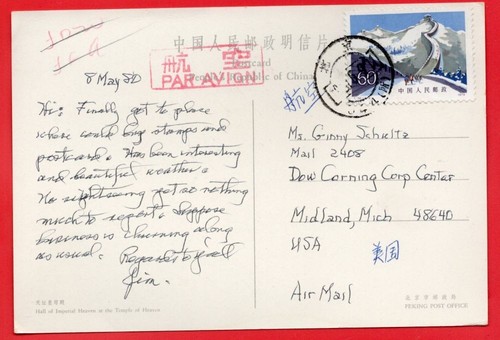 中国人民邮政明信片
Postcard
People's Republic of China
航空
PAR AVION
8 May 80
Hi: Finally got to place
where could buy stamps and
postcard. Has been interesting
and beautiful weather.
No sightseeing yet so nothing
much to report. Suppose
business is churning along
as usual. Regards to y'all
Jim.
Hall of Imperial Heaven at the Temple of Heaven
60
中国人民邮政
航空
Ms. Ginny Schultz
Mail 2408
Dow Corning Corp Center
Midland, Mich 48640
USA
美国
Air Mail
北京市邮政局
PEKING POST OFFICE